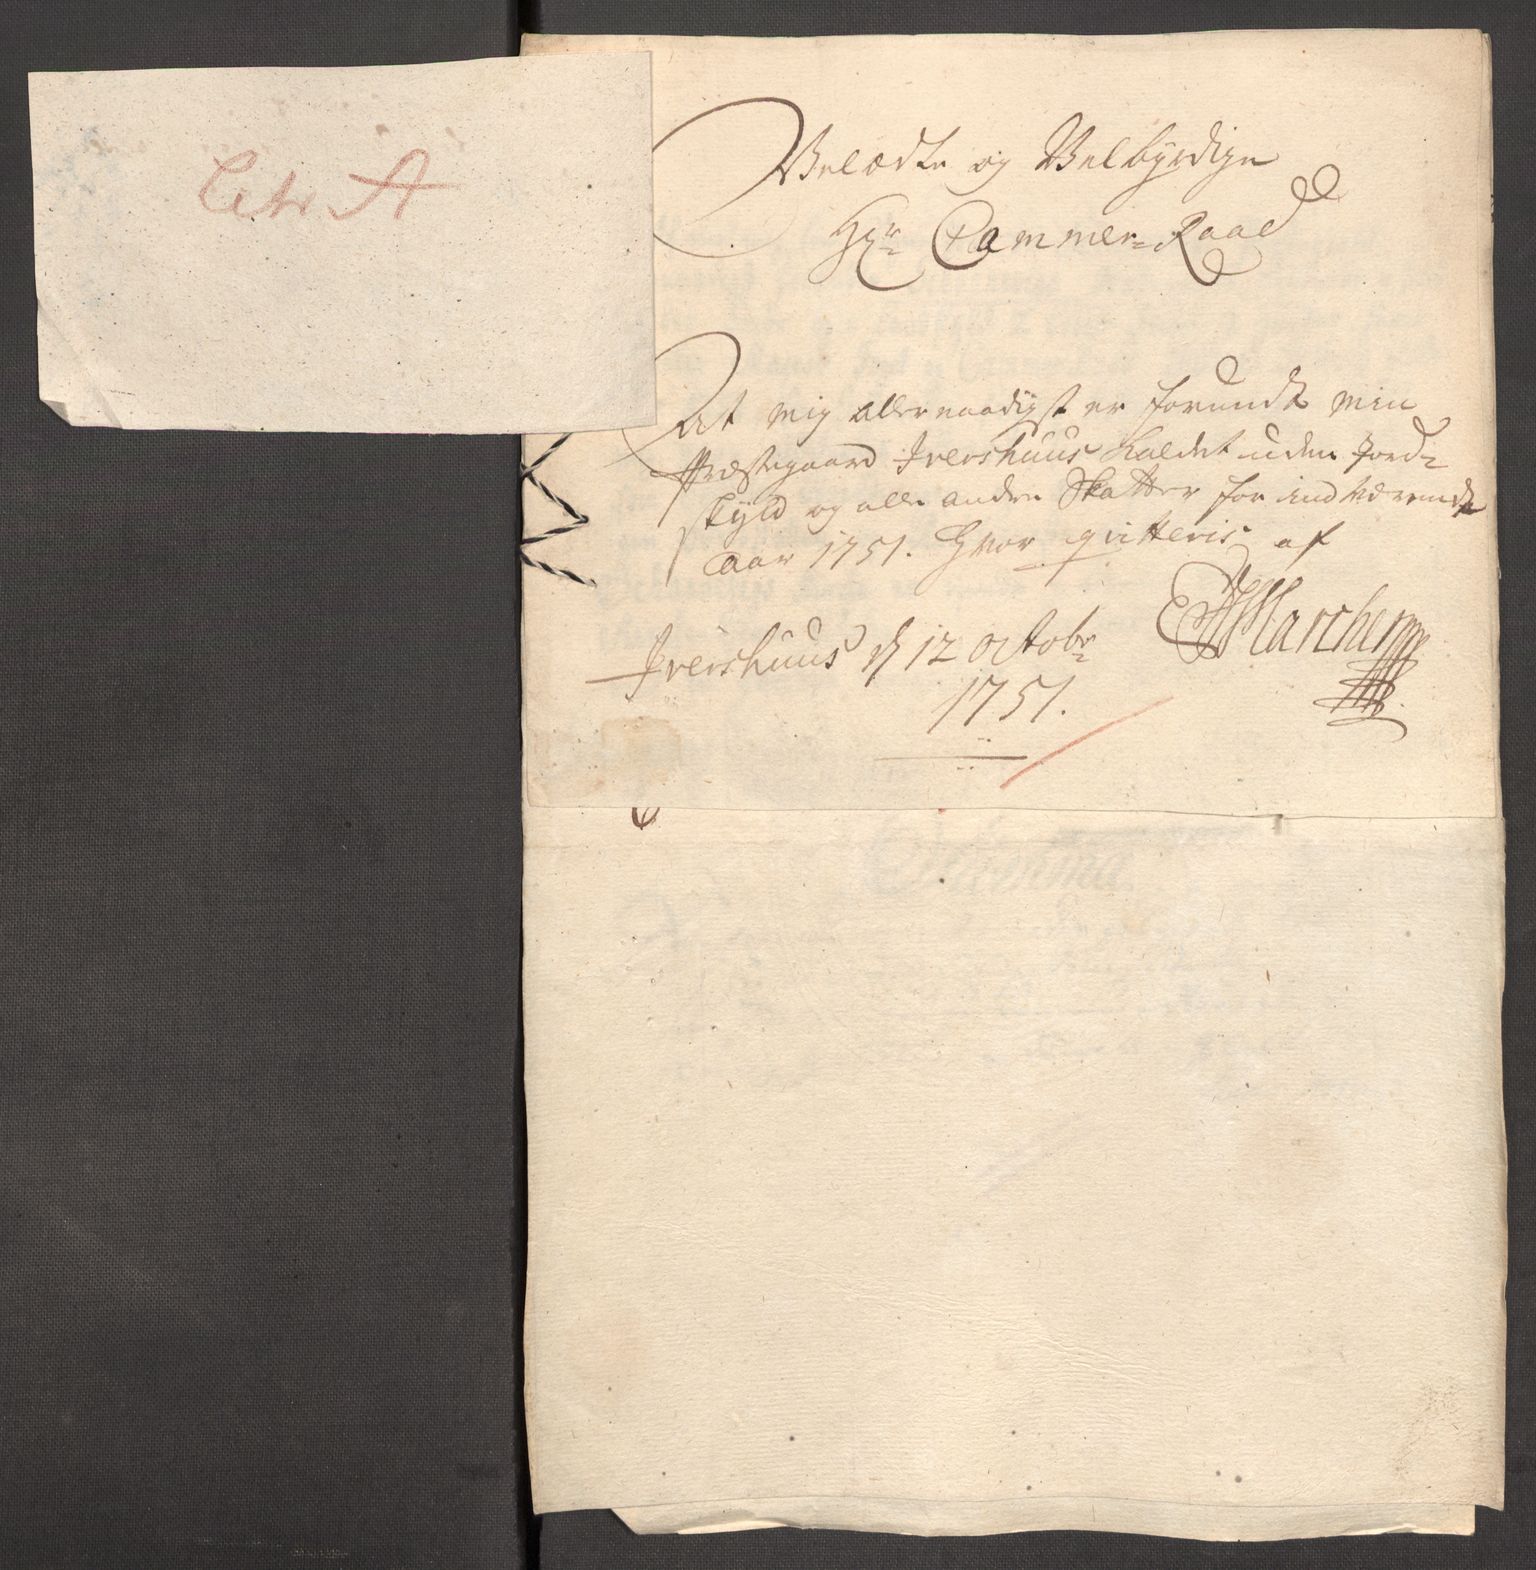 Litr A
Velædle og Velbyrdige
Hr Cammer-Raad
At mig allernaadigst er forundt min
Præstegaard Ivershuus kaldet uden Jord-
skyld og alle andre Skatter for indværende
aar 1751. Hvor qvitteris af
Ivershuus d 12 Octobr
1751.